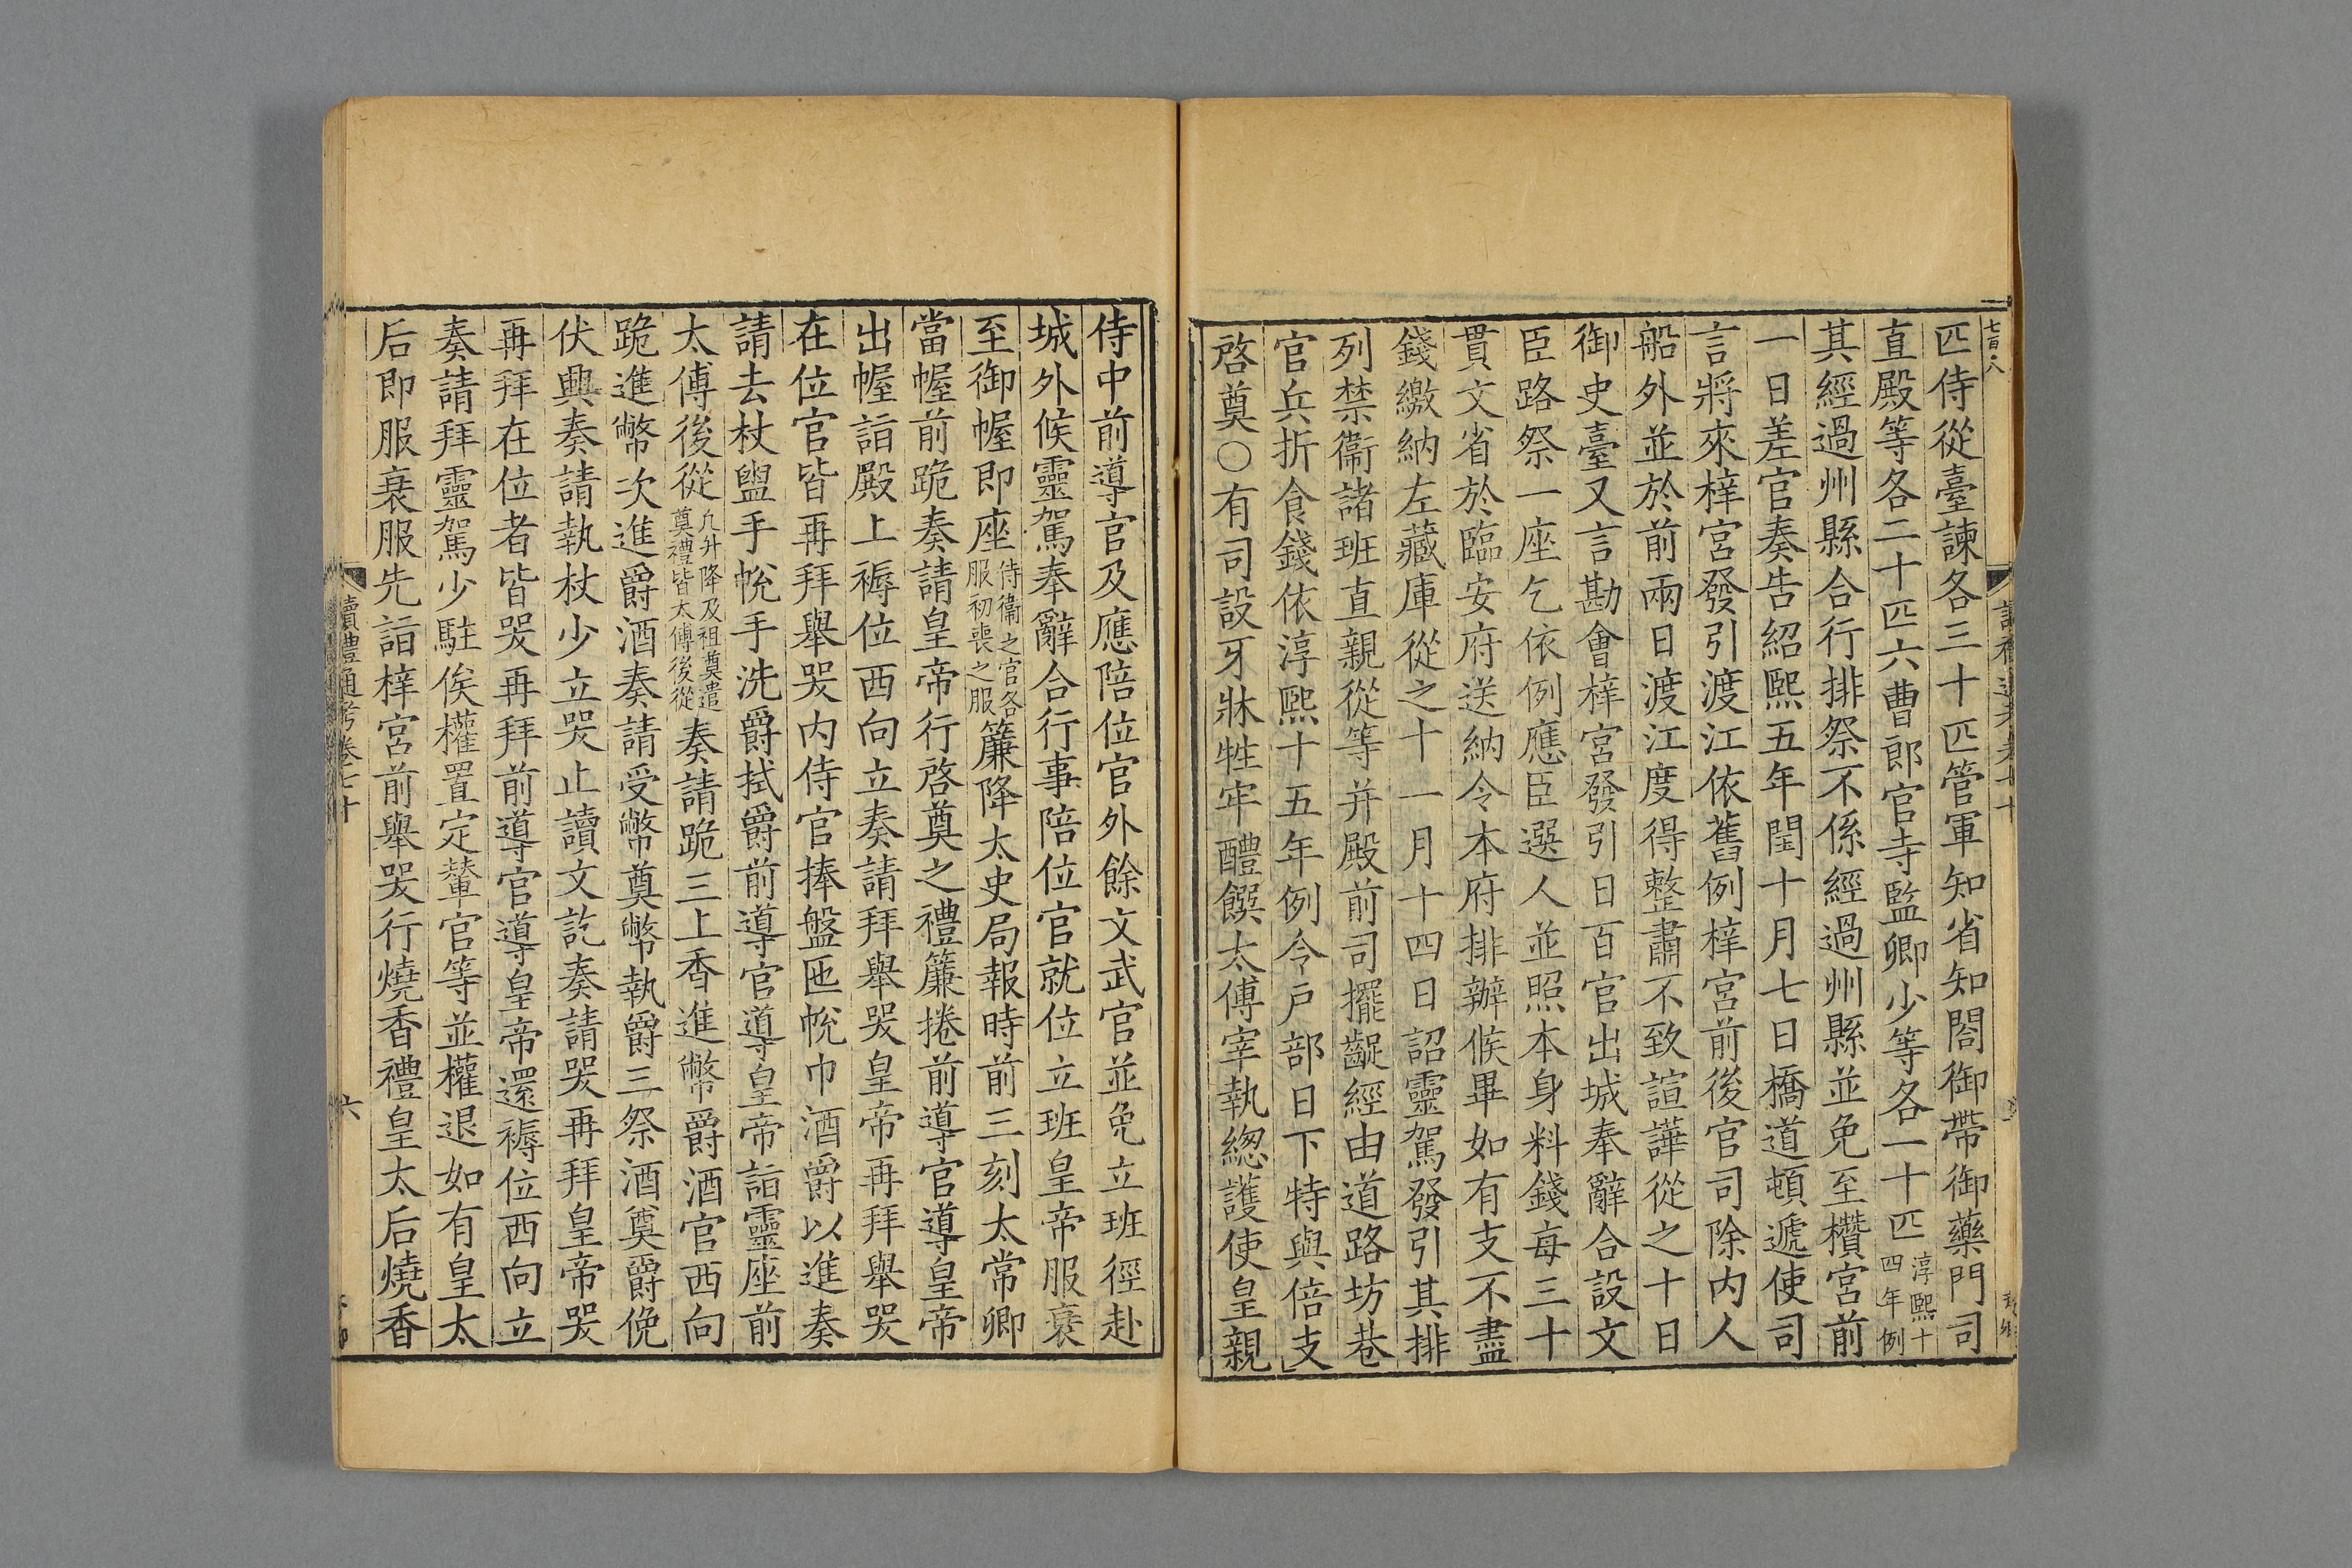 匹侍從臺諫各三十匹管軍知省知閤御帶御藥門司
直殿等各二十匹六曹郎官寺監卿少等各一十匹淳熙十四年例
其經過州縣合行排祭不係經過州縣並免至欑宮前
一日差官奏告紹熙五年閏十月七日橋道頓遞使司
言將來梓宮發引渡江依舊例梓宮前後官司除内人
船外並於前兩日渡江度得整肅不致諠譁從之十日
御史臺又言勘會梓宮發引日百官出城奉辭合設文
臣路祭一座乞依例應臣選人並照本身料錢每三十
貫文省於臨安府送納令本府排辦候畢如有支不盡
錢繳納左藏庫從之十一月十四日詔靈駕發引其排
列禁衞諸班直親從等并殿前司擺齪經由道路坊巷
官兵折食錢依淳熙十五年例令戶部日下特與倍支
啓奠○有司設牙牀牲牢醴饌太傅宰執緫護使皇親
侍中前導官及應陪位官外餘文武官並免立班徑赴
城外候靈駕奉辭合行事陪位官就位立班皇帝服衰
至御幄即座侍衞之官各服初喪之服簾降太史局報時前三刻太常卿
當幄前跪奏請皇帝行啓奠之禮簾捲前導官導皇帝
出幄詣殿上褥位西向立奏請拜舉哭皇帝再拜舉哭
在位官皆再拜舉哭内侍官捧盤匜帨巾酒爵以進奏
請去杖盥手帨手洗爵拭爵前導官導皇帝詣靈座前
太傅後從凢升降及祖奠遣奠禮皆太傅後從奏請跪三上香進幣爵酒官西向
跪進幣次進爵酒奏請受幣奠幣執爵三祭酒奠爵俛
伏興奏請執杖少立哭止讀文訖奏請哭再拜皇帝哭
再拜在位者皆哭再拜前導官導皇帝還褥位西向立
奏請拜靈駕少駐俟權置定輦官等並權退如有皇太
后即服衰服先詣梓宮前舉哭行燒香禮皇太后燒香
讀禮通考卷七十
六